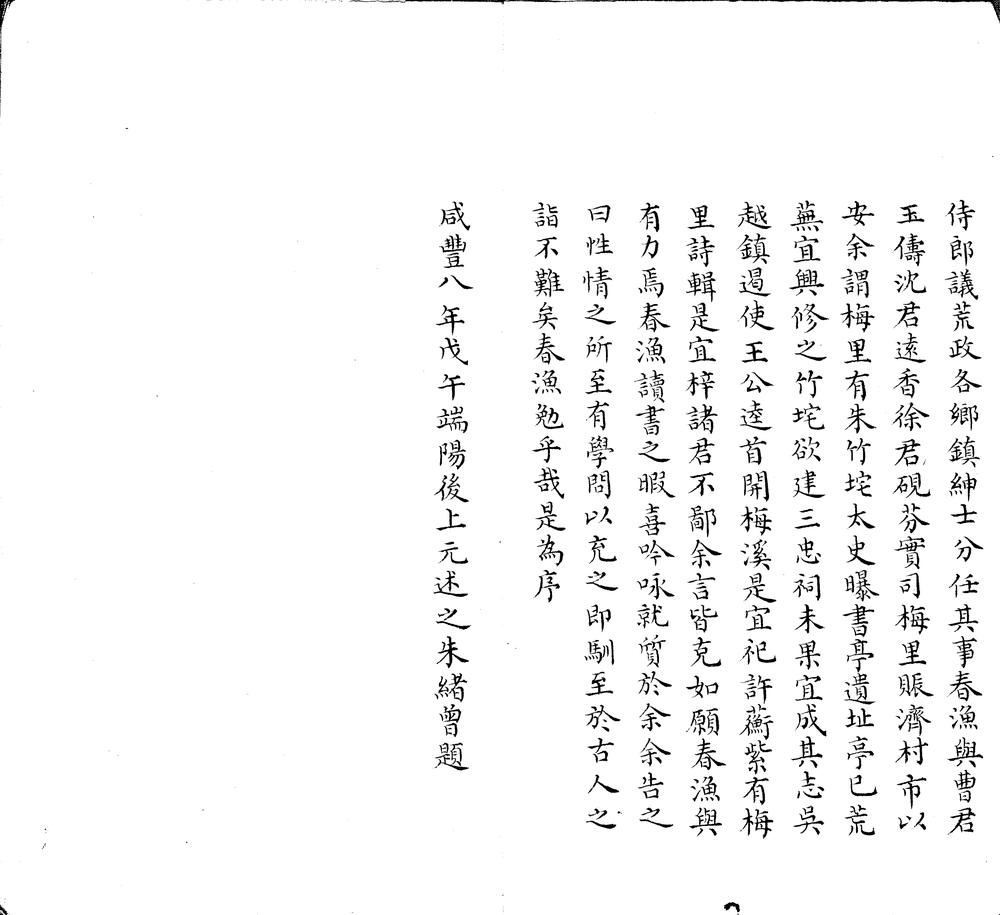 侍郎議荒政各鄉鎮紳士分任其事春漁與曹君
玉儔沈君遠香徐君硯芬實司梅里賑濟村市以
安余謂梅里有朱竹垞太史曝書亭遺址亭已荒
蕪宜興修之竹垞欲建三忠祠未果宜成其志吳
越鎮遏使王公逵首開梅溪是宜祀許蘅紫有梅
里詩輯是宜梓諸君不鄙余言皆克如願春漁與
有力焉春漁讀書之暇喜吟咏就質於余余告之
曰性情之所至有學問以充之即馴至於古人之
詣不難矣春漁勉乎哉是為序
咸豐八年戊午端陽後上元述之朱緒曾題